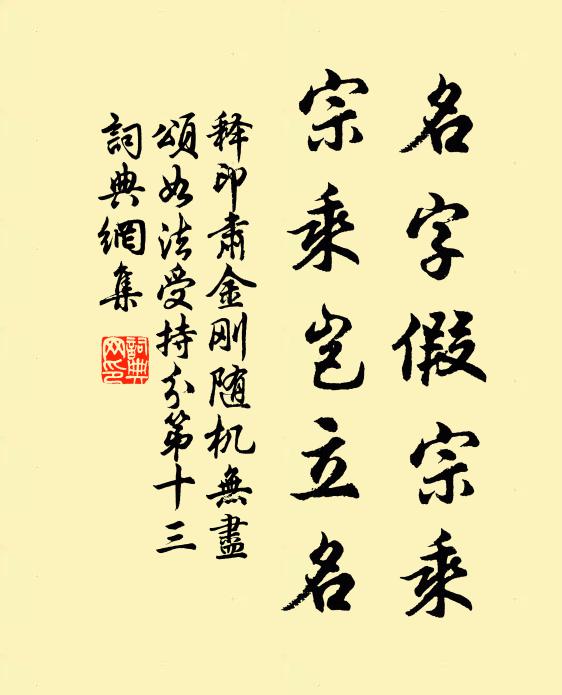 名字假宗乘
宗乘岂立名
释印肃金刚随机無盡
頌如法受持分第十三
詞典網集
詞典
网印